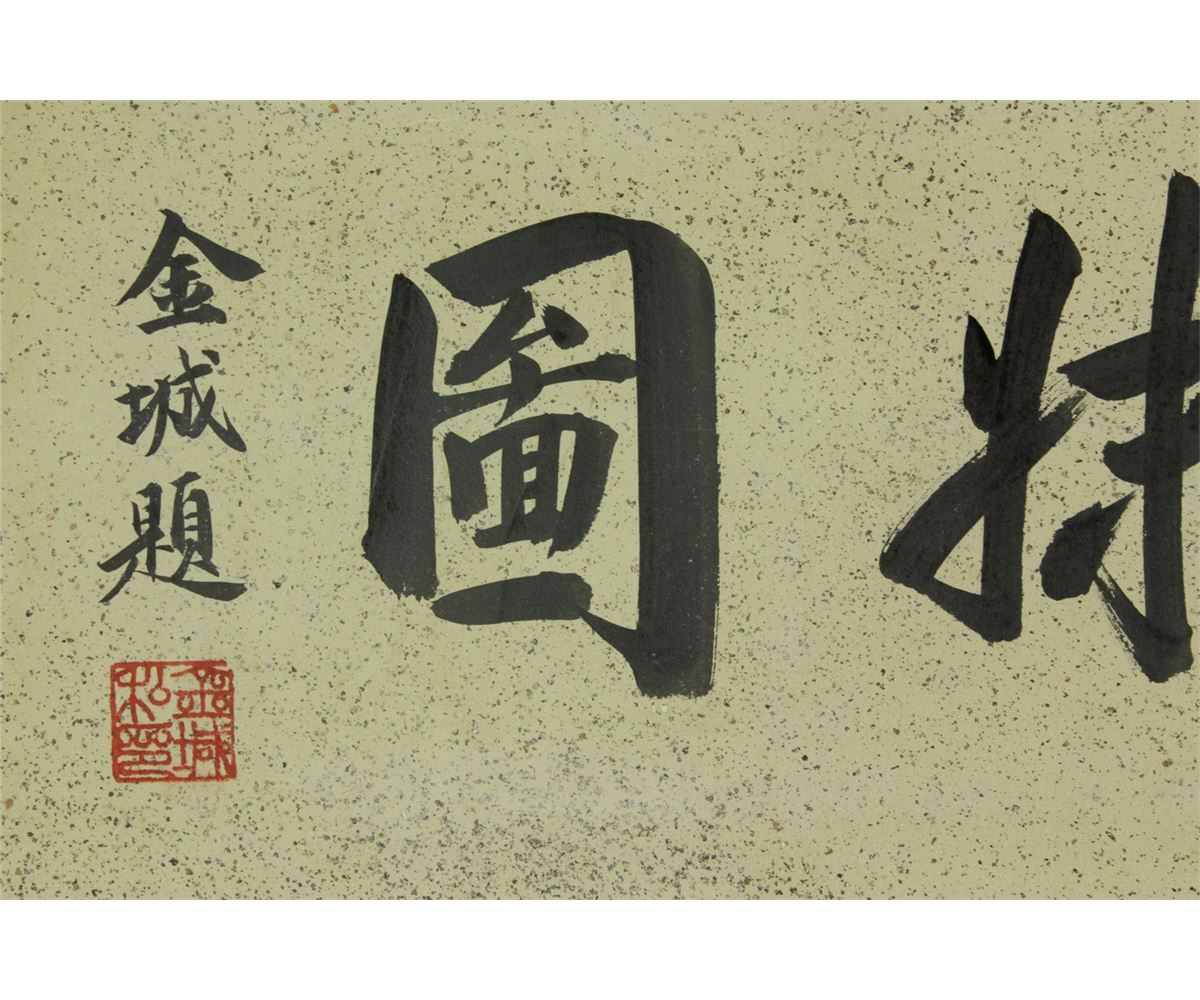 圖
金城題
金城私印